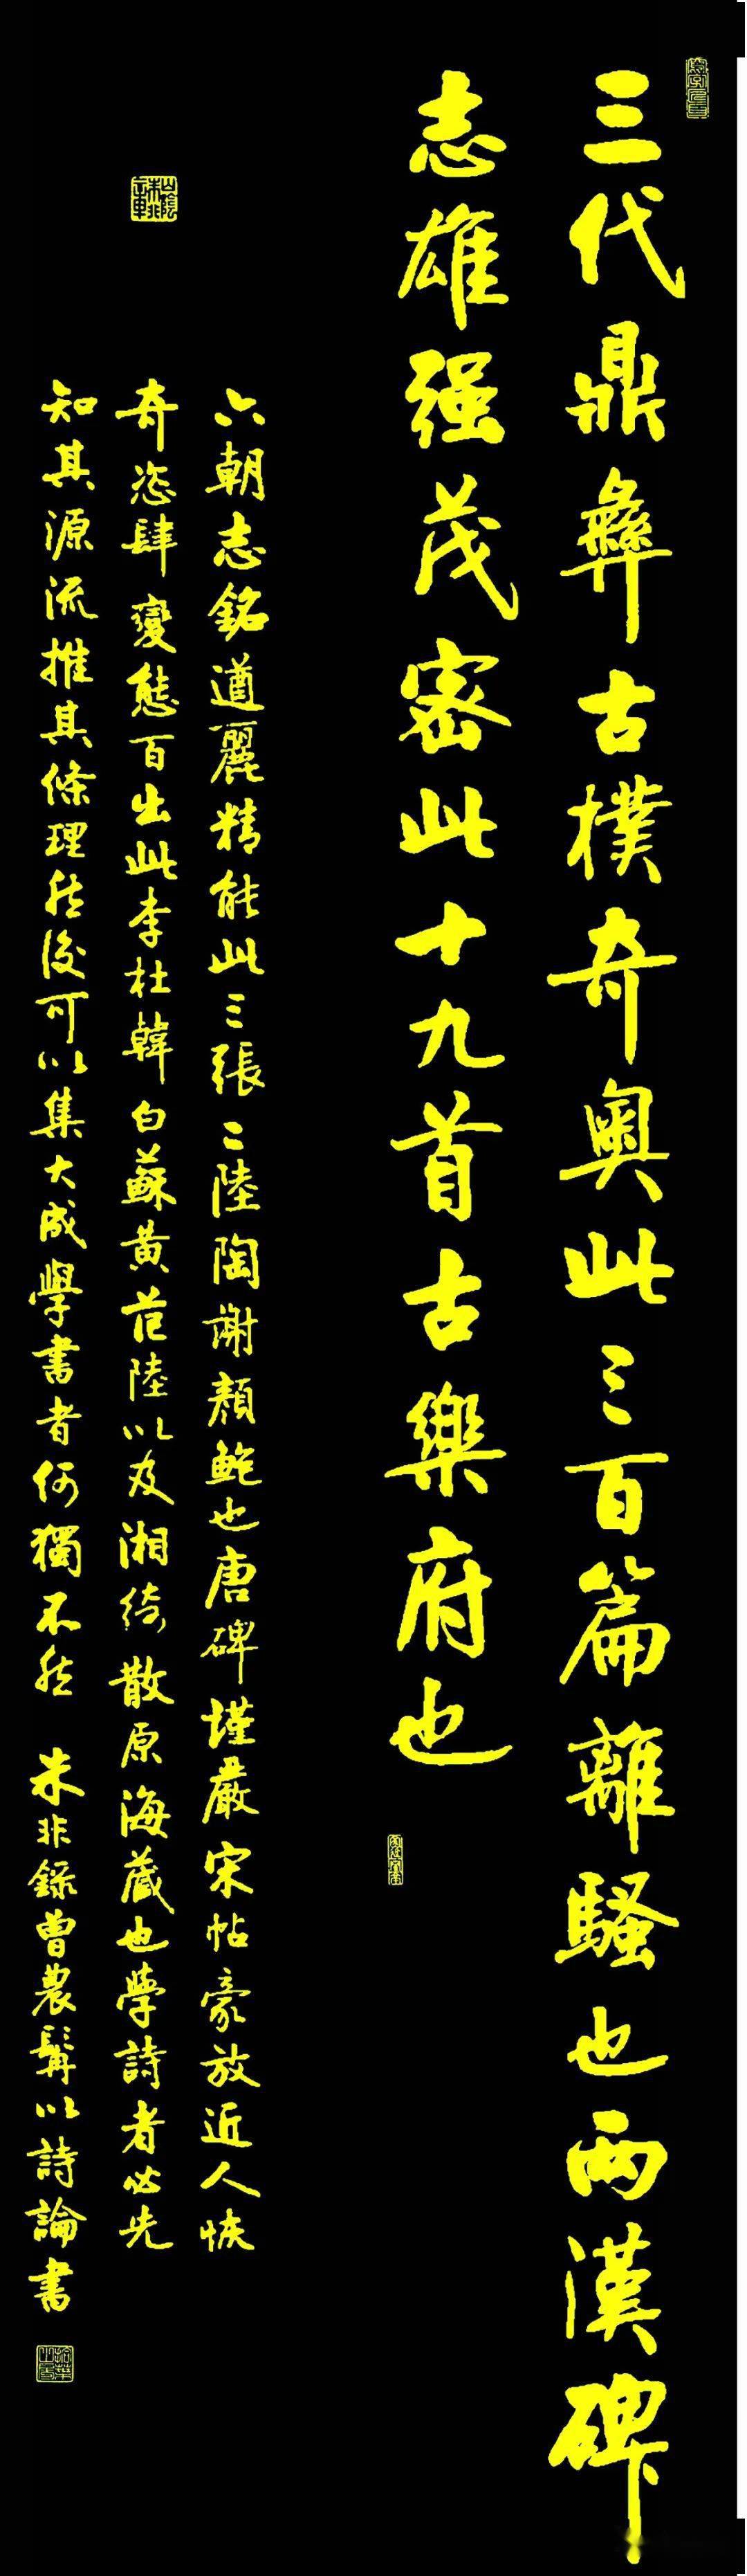 三代鼎彝古樸奇奥此三百篇離騷也兩漢碑
志雄强茂密此十九首古樂府也
六朝志銘遒麗精能此三張二陸陶謝顏鮑也唐碑謹嚴宋帖豪放近人恢
奇恣肆變態百出此李杜韓白蘇黃范陸以及湘綺散原海藏也學詩者必先
知其源流推其條理然後可以集大成學書者何獨不然 朱非錄曾農髯以詩論書